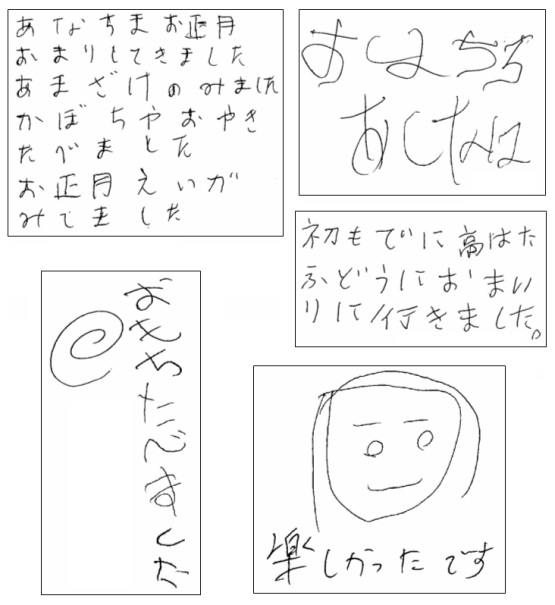 あなちまお正月
おまりとてきました
あまざけのみました
かぼちやおやき
たべました
お正月えいが
みてました
初もでに高はた
ふどうにおまい
りに行きました。
おもちたべました
楽しかったです